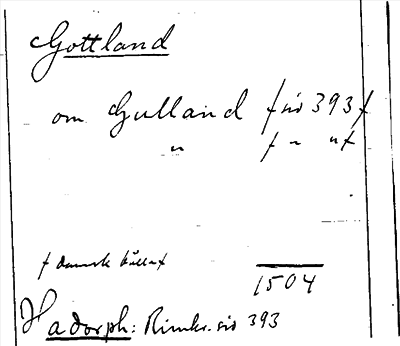 Gottland
om Gulland f sid 393 f
" f " " f
f dansk källa f
1504
Hadorph: Rimkr. sid 393